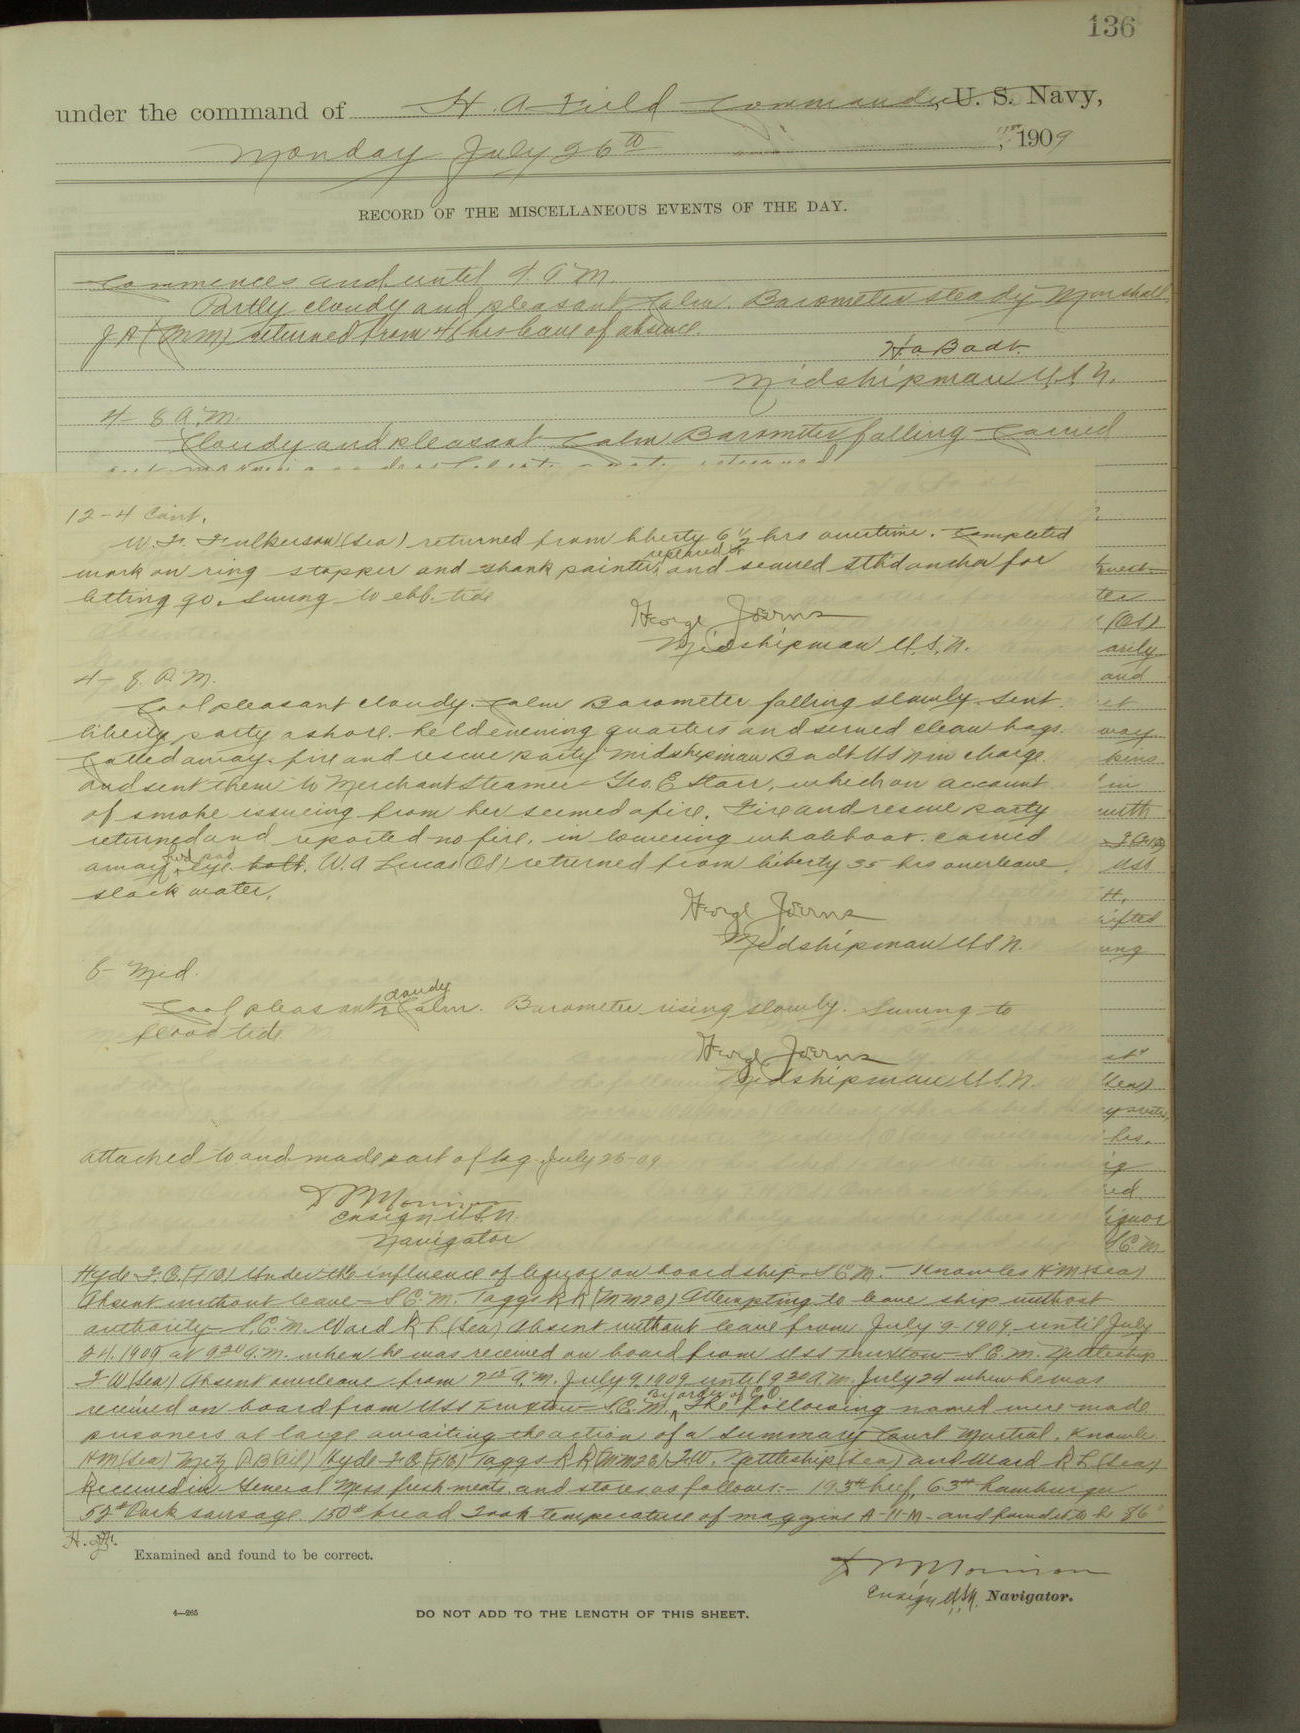 136
under the command of H. A. Field Commander, U. S. Navy,
Monday July 26th, 1909
RECORD OF THE MISCELLANEOUS EVENTS OF THE DAY.
Commences and until 4 A.M.
Partly cloudy and pleasant Calm. Barometer steady Marshall
J A (MM) returned from 48 hrs leave of absence.
Midshipman U.S.N.
4-8 A.M.
Cloudy and pleasant Calm Barometer falling
returned
12-4 Cont.
W. F. Fulkerson (Sea) returned from liberty 6 ½ hrs overtime. Completed
work on ring stopper and shank painter, replaced & and secured stbd anchor for
letting go. Swung to ebb tide
George Joerns
Midshipman U.S.N.
4-8 P.M.
Cool pleasant cloudy. Calm Barometer falling slowly. Sent
liberty party ashore. held evening quarters and served clean bags.
Called away fire and rescue party Midshipman Badt USN in charge
and sent them to Merchant Steamer Geo. E Starr, which on account
of smoke issueing from her seemed afire. Fire and rescue party
returned and reported no fire, in lowering whaleboat. carried
away fwd pad eye bolt. W. A Lucas (OS) returned from liberty 35 hrs overleave.
slack water.
George Joerns
Midshipman U.S.N.
8-Mid.
Cool pleasant cloudy & Calm. Barometer rising slowly. Swung to
flood tide
George Joerns
Midshipman U.S.N.
Attached to and made part of log July 26-09
Ensign U.S.N.
Navigator
Hyde F. C. Under the influence of liquor on board ship. S C M. Knowles H M (Sea)
Absent without leave S.C.M. Taggs R R (MM2c) Attempting to leave ship without
authority S.C.M. Ward R L (Sea) Absent without leave from July 9-1909 until July
24, 1909 at 9 30 A.M. when he was received on board from USS Truxton S.C.M. Nettleship
F W (Sea) Absent overleave from A.M. July 9, 1909 until 9 30 A.M. July 24 when he was
received on board from USS Truxton S.C.M. By order of C.O. The following named were made
prisoners at large awaiting the action of a Summary Court Martial. Knowles
HM (Sea) Hyde F C Taggs R R (MM2c) F.W. Nettleship (Sea) and Ward R L (Sea)
Received in General Mess fresh meats and stores as follows:- 193# beef, 63# hamburger
52# Pork sausage 150# bread Took temperature of magazine A-11-M and found it to be 86°
Examined and found to be correct.
Ensign U.S.N. Navigator.
4—265
DO NOT ADD TO THE LENGTH OF THIS SHEET.